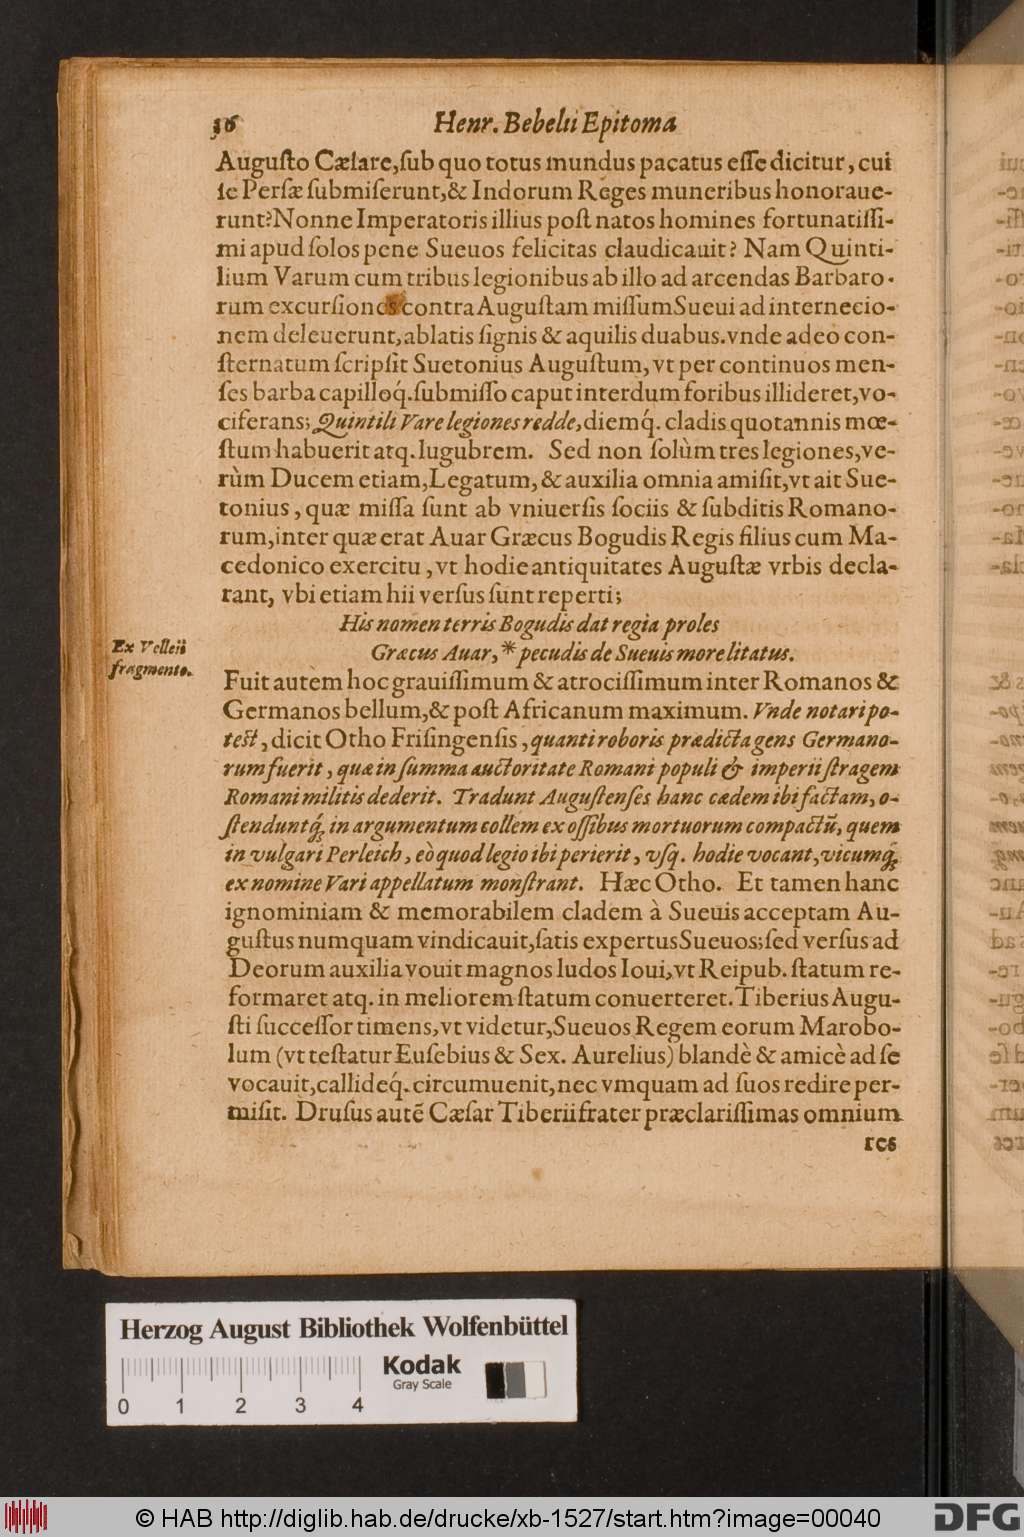 36 Henr. Bebelii Epitoma
Auguſto Cæſare, ſub quo totus mundus pacatus eſſe dicitur, cui
ſe Perſæ ſubmiſerunt, & Indorum Reges muneribus honoraue-
runt? Nonne Imperatoris illius poſt natos homines fortunatiſſi-
mi apud ſolos pene Sueuos felicitas claudicauit? Nam Quinti-
lium Varum cum tribus legionibus ab illo ad arcendas Barbaro-
rum excurſiones contra Auguſtam miſſum Sueui ad internecio-
nem deleuerunt, ablatis ſignis & aquilis duabus. vnde adeo con-
ſternatum ſcripſit Suetonius Auguſtum, vt per continuos men-
ſes barba capilloq́. ſubmiſſo caput interdum foribus illideret, vo-
ciferans; Quintili Vare legiones redde, diemq́. cladis quotannis mœ-
ſtum habuerit atq. lugubrem. Sed non ſolùm tres legiones, ve-
rùm Ducem etiam, Legatum, & auxilia omnia amiſit, vt ait Sue-
tonius, quæ miſſa ſunt ab vniuerſis ſociis & ſubditis Romano-
rum, inter quæ erat Auar Græcus Bogudis Regis filius cum Ma-
cedonico exercitu, vt hodie antiquitates Auguſtæ vrbis decla-
rant, vbi etiam hii verſus ſunt reperti;
His nomen terris Bogudis dat regia proles
Græcus Auar, * pecudis de Sueuis more litatus.
Ex Velleii
fragmento.
Fuit autèm hoc grauiſſimum & atrociſſimum inter Romanos &
Germanos bellum, & poſt Africanum maximum. Vnde notari po-
teſt, dicit Otho Friſingenſis, quanti roboris prædicta gens Germano-
rum fuerit, quæ in ſumma auctoritate Romani populi & imperii ſtragem
Romani militis dederit. Tradunt Auguſtenſes hanc cædem ibi factam, o-
ſtenduntq́, in argumentum collem ex oſſibus mortuorum compactũ, quem
in vulgari Perleich, eò quod legio ibi perierit, vſq. hodie vocant, vicumq́,
ex nomine Vari appellatum monſtrant. Hæc Otho. Et tamen hanc
ignominiam & memorabilem cladem à Sueuis acceptam Au-
guſtus numquam vindicauit, ſatis expertus Sueuos; ſed verſus ad
Deorum auxilia vouit magnos ludos Ioui, vt Reipub. ſtatum re-
formaret atq. in meliorem ſtatum conuerteret. Tiberius Augu-
ſti ſucceſſor timens, vt videtur, Sueuos Regem eorum Marobo-
lum (vt teſtatur Euſebius & Sex. Aurelius) blandè & amicè ad ſe
vocauit, callideq́. circumuenit, nec vmquam ad ſuos redire per-
miſit. Druſus autẽ Cæſar Tiberii frater præclariſſimas omnium
res
Herzog August Bibliothek Wolfenbüttel
Kodak
Gray Scale
0 1 2 3 4
© HAB http://diglib.hab.de/drucke/xb-1527/start.htm?image=00040
DFG